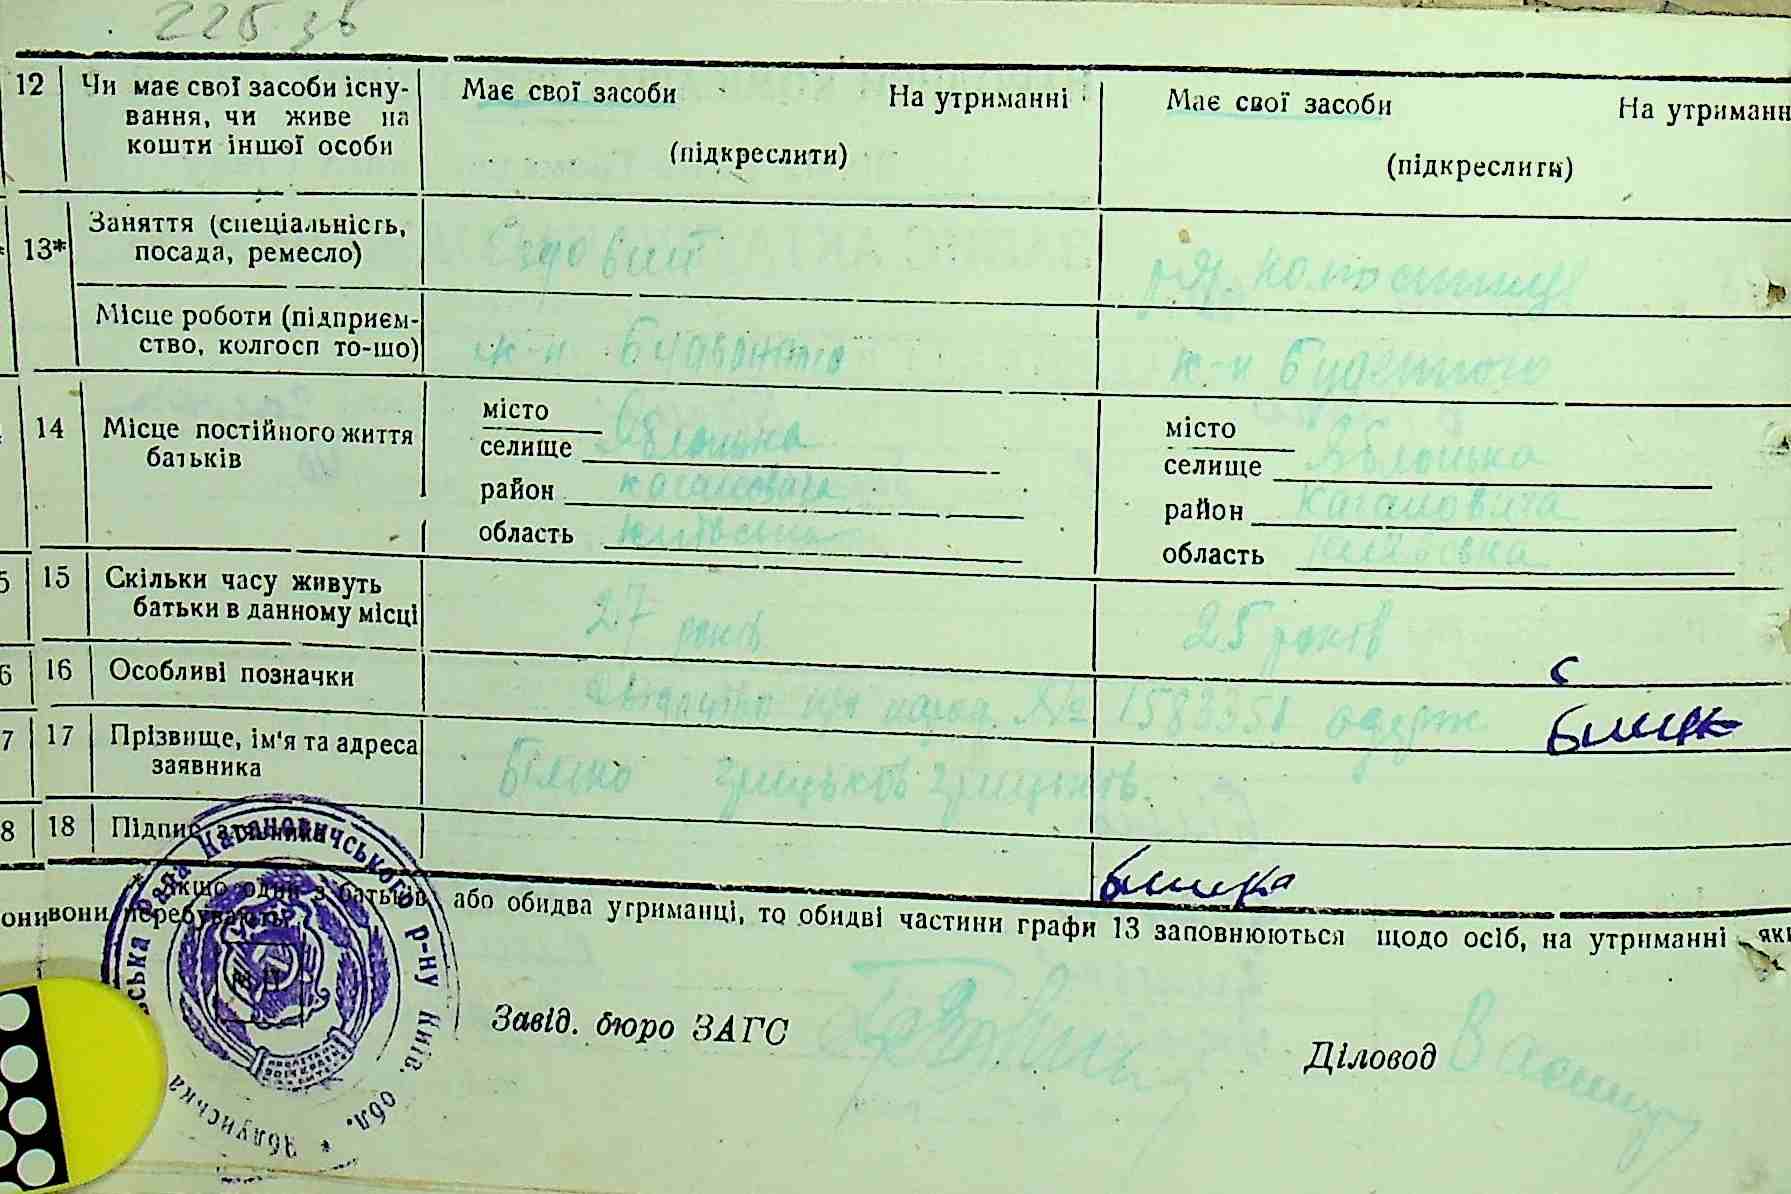 225 зв
12 Чи має свої засоби існу- Має свої засоби На утриманні Має свої засоби На утриманн
вання, чи живе на
кошти іншої особи (підкреслити) (підкреслити)
13* Заняття (спеціальність, Їздовий
посада, ремесло)
Місце роботи (підприєм- к-п Будьонного к-п Будьонного
ство, колгосп то-що)
14 Місце постійного життя місто місто
батьків селище Яблонька селище Яблонька
район Кагановича район Кагановича
область Київська область Київська
5 15 Скільки часу живуть 27 років 25 років
батьки в данному місці
6 16 Особливі позначки № 1583351 одерж
7 17 Прізвище, ім'я та адреса Білько
заявника
8 18 Підпис заявника
* Якщо один з батьків або обидва утриманці, то обидві частини графи 13 заповнюються щодо осіб, на утриманні яки
они вони перебувають
Завід. бюро ЗАГС Діловод
ська рада Кагановичського р-ну Київ. обл. * Яблунська
УРСР